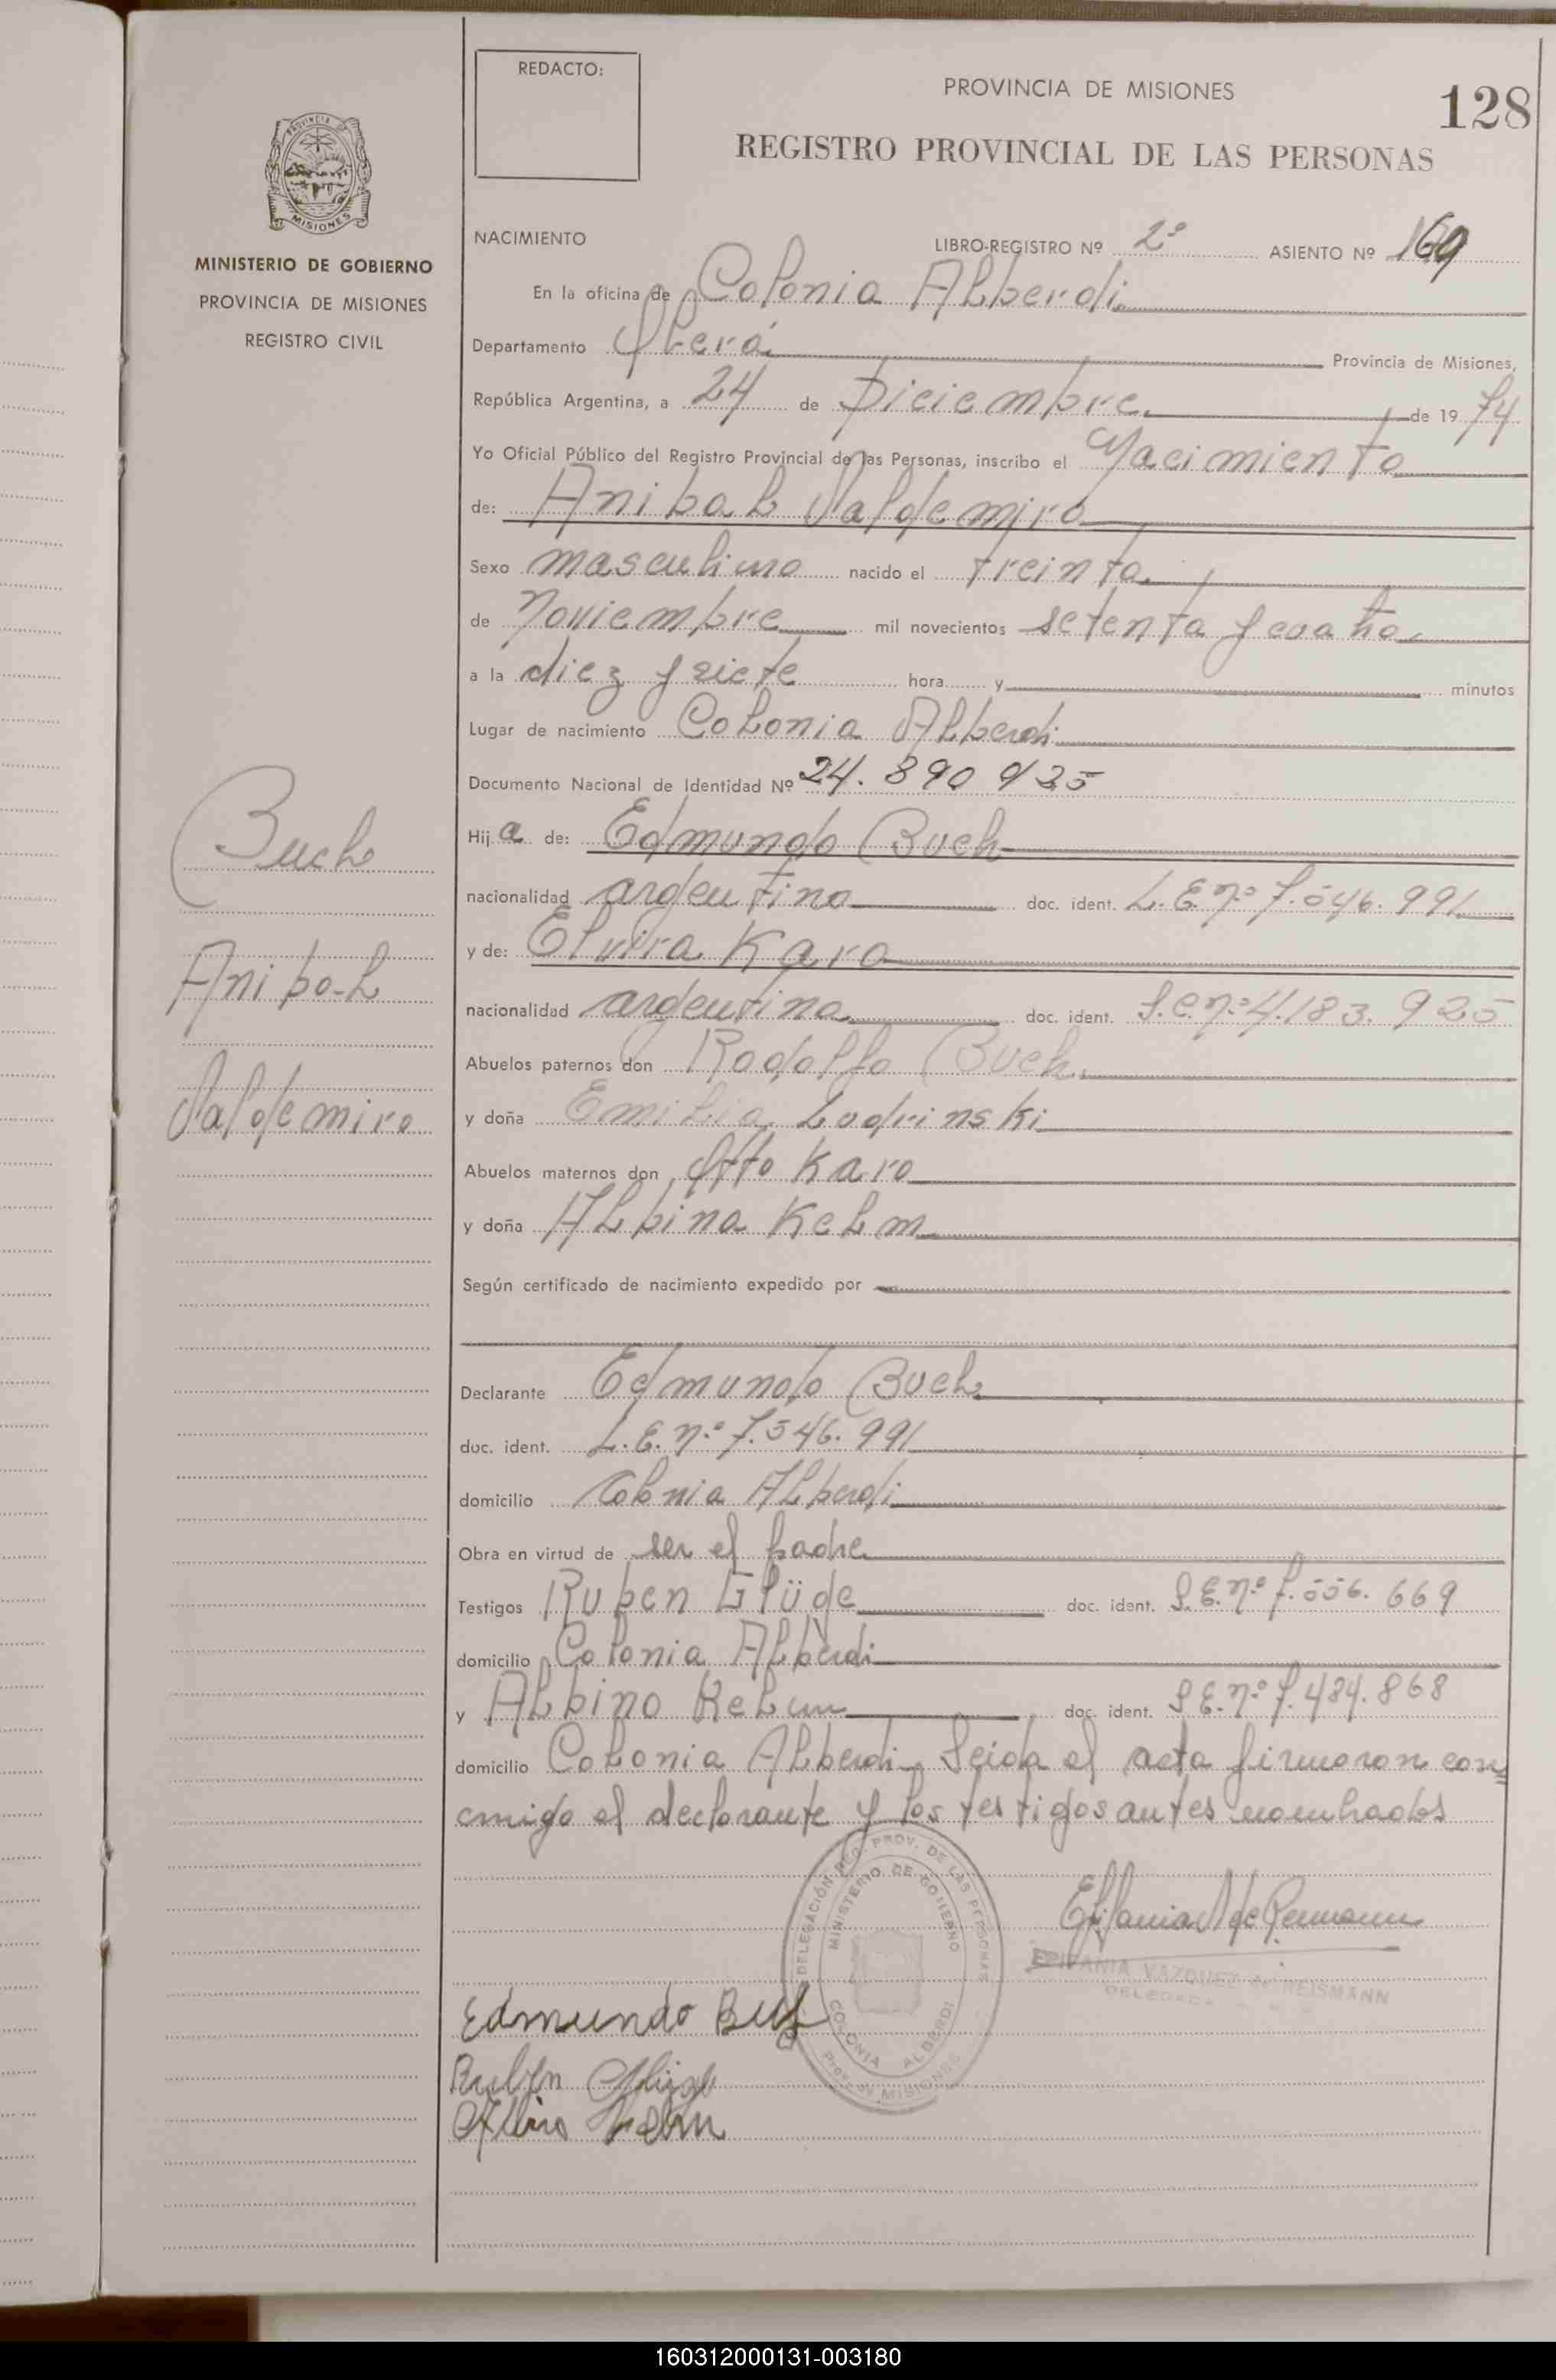 REDACTO:
PROVINCIA DE MISIONES
128
REGISTRO PROVINCIAL DE LAS PERSONAS
PROVINCIA DE
MISIONES
MINISTERIO DE GOBIERNO
PROVINCIA DE MISIONES
REGISTRO CIVIL
Buch
Anibal
Valdemiro
NACIMIENTO
LIBRO-REGISTRO Nº 2º ASIENTO Nº 169
En la oficina de Colonia Alberdi
Departamento Oberá Provincia de Misiones,
República Argentina, a 24 de Diciembre de 19 74
Yo Oficial Público del Registro Provincial de las Personas, inscribo el Nacimiento
de: Anibal Valdemiro
Sexo masculino nacido el treinta
de Noviembre mil novecientos setenta y cuatro
a la diez y siete hora y minutos
Lugar de nacimiento Colonia Alberdi
Documento Nacional de Identidad Nº 24. 890 925
Hij a de: Edmundo Buch
nacionalidad argentino doc. ident. L.E. nº 7.546.991
y de: Elvira Karo
nacionalidad argentina doc. ident. L.C. nº 4.183.925
Abuelos paternos don Rodolfo Buch
y doña Emilia Ludrinski
Abuelos maternos don Otto Karo
y doña Albina Kelm
Según certificado de nacimiento expedido por
Declarante Edmundo Buch
doc. ident. L.E. nº 7.546.991
domicilio Colonia Alberdi
Obra en virtud de ser el padre
Testigos Ruben Glüge doc. ident. L.E. nº 7.556.669
domicilio Colonia Alberdi
y Albino Kelm doc. ident. L.E. nº 7.484.868
domicilio Colonia Alberdi Leida el acta firmaron con=
migo el declarante y los testigos antes nombrados
DELEGACIÓN REG. PROV. DE LAS PERSONAS
MINISTERIO DE GOBIERNO
COLONIA ALBERDI
Prov. de MISIONES
EPIFANIA VAZQUEZ de REISMANN
DELEGADA
Edmundo Buch
Ruben Glüge
Albino Kelm
160312000131-003180